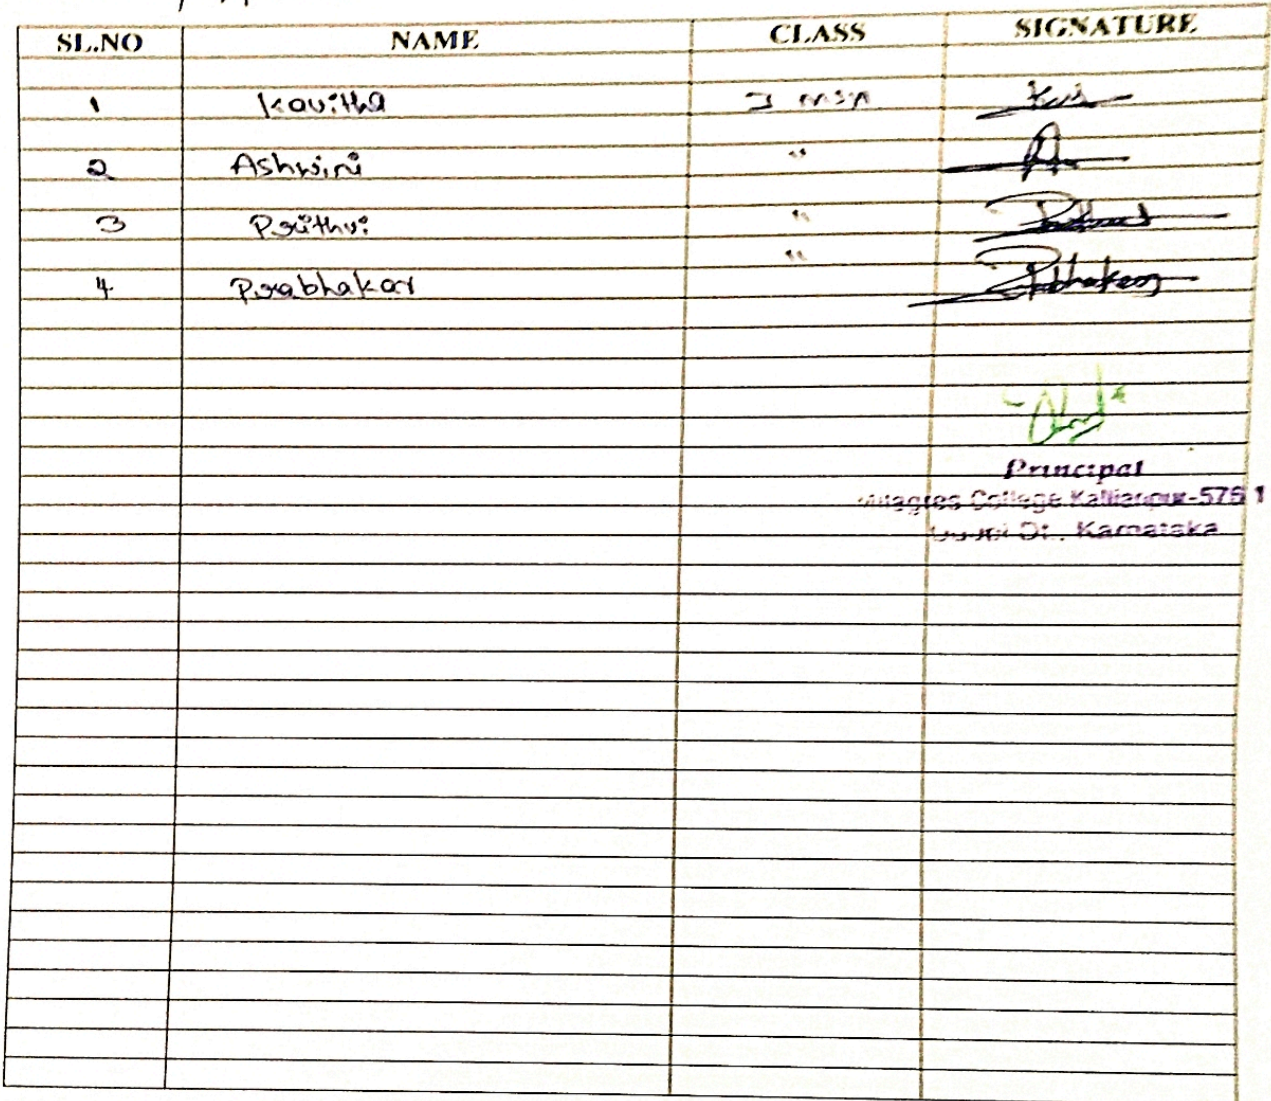 SL.NO NAME CLASS SIGNATURE
1 Kavitha I MSW
2 Ashwini "
3 Prithvi "
4 Prabhakar " Prabhakar
Principal
Milagres College Kallianpur-576 1
Udupi Dt., Karnataka